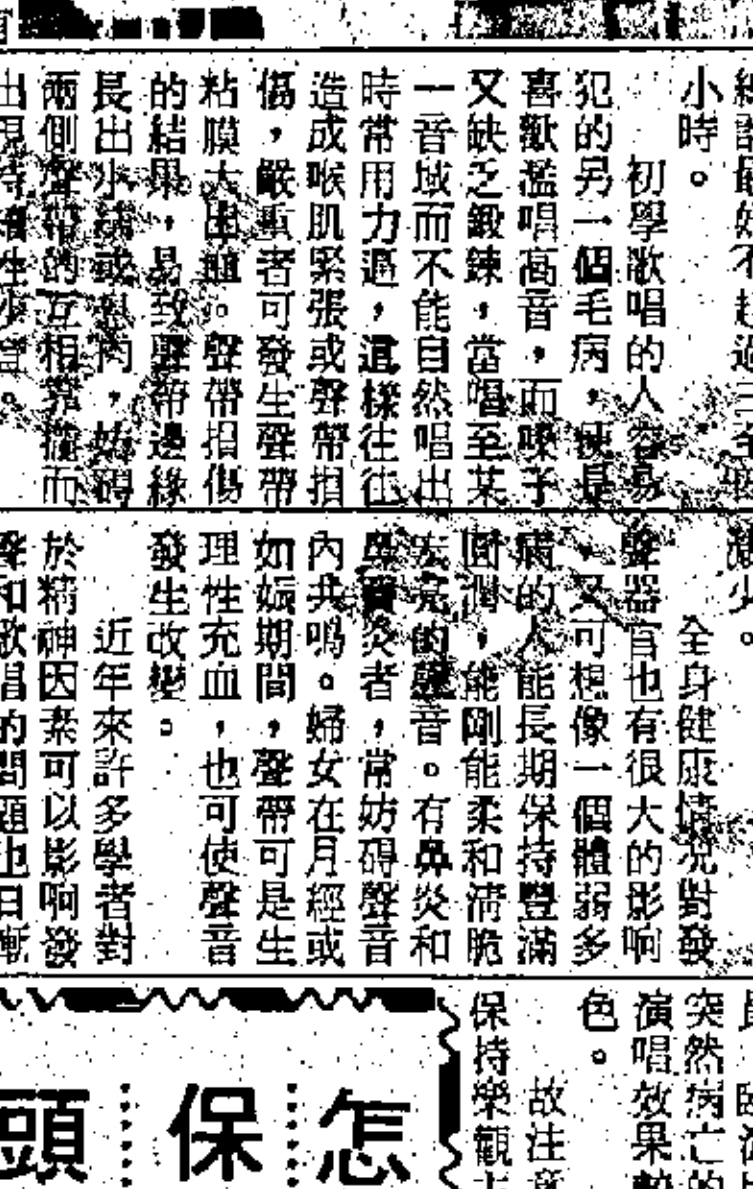 小時。
初學歌唱的人容易
犯的另一個毛病，便是
喜歡濫唱高音，而嗓子
又缺乏鍛鍊，當唱至某
一音域而不能自然唱出
時常用力逼，這樣往往
造成喉肌緊張或聲帶損
傷，嚴重者可發生聲帶
粘膜大出血。聲帶損傷
的結果，易致聲帶邊緣
長出小結或息肉，妨碍
兩側聲帶的互相靠攏而
減少。
全身健康情況對發
聲器官也有很大的影响
，又可想像一個體弱多
病的人能長期保持豐滿
圓潤，能剛能柔和清脆
宏亮的聲音。有鼻炎和
鼻竇炎者，常妨碍聲音
內共鳴。婦女在月經或
如娠期間，聲帶可是生
理性充血，也可使聲音
發生改變。
近年來許多學者對
於精神因素可以影响發
聲和歌唱的問題也日漸
突然病亡的
演唱效果
色。
故注意
保持樂觀
怎
保
頭